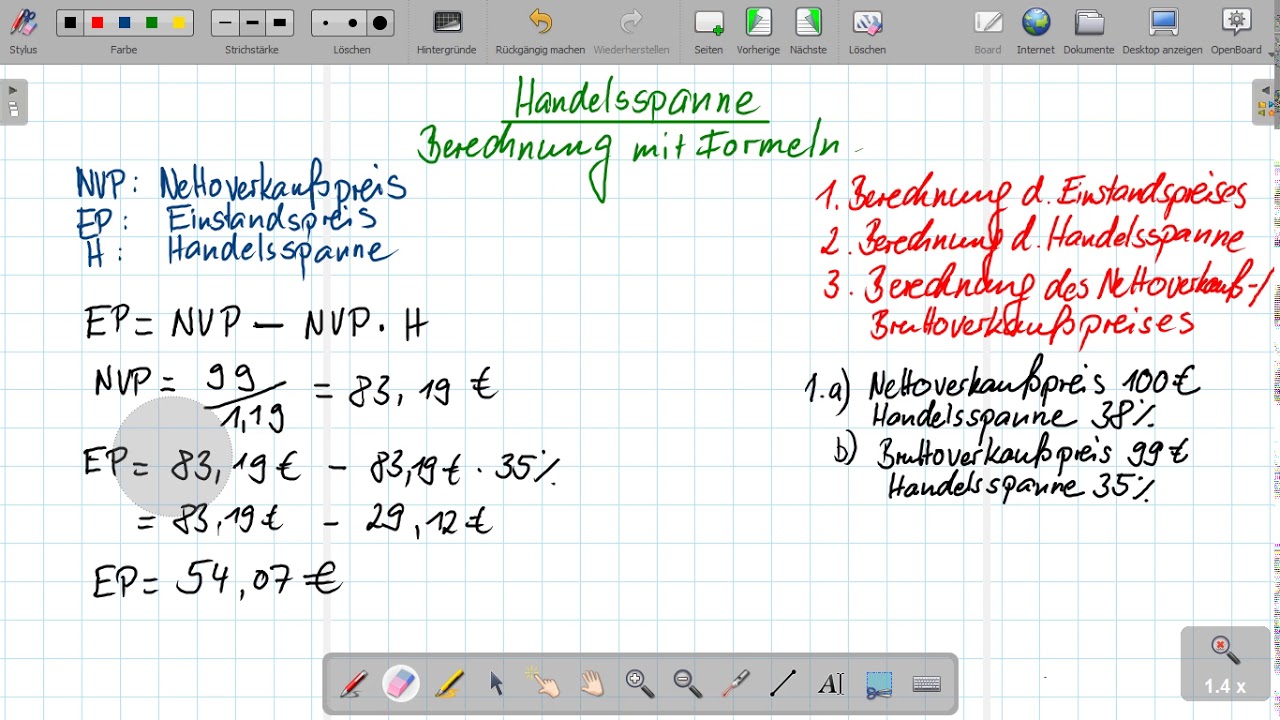 Stylus
Farbe
Strichstärke
Löschen
Hintergründe
Rückgängig machen
Wiederherstellen
Seiten
Vorherige
Nächste
Löschen
Board
Internet
Dokumente
Desktop anzeigen
OpenBoard
Handelsspanne
Berechnung mit Formeln
NVP: Nettoverkaufspreis
EP: Einstandspreis
H: Handelsspanne
EP = NVP - NVP · H
NVP = 99/1,19 = 83,19 €
EP = 83,19 € - 83,19 € · 35%
= 83,19 € - 29,12 €
EP = 54,07 €
1. Berechnung d. Einstandspreises
2. Berechnung d. Handelsspanne
3. Berechnung des Nettoverkaufs-/
Bruttoverkaufspreises
1.a) Nettoverkaufspreis 100 €
Handelsspanne 38%
b) Bruttoverkaufspreis 99 €
Handelsspanne 35%
AI
1.4 x